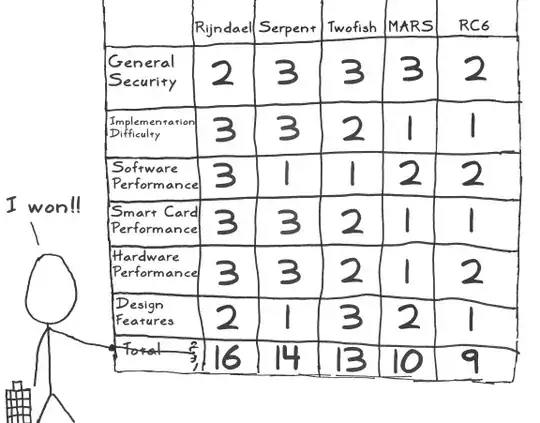 Rijndael Serpent Twofish MARS RC6
General
Security 2 3 3 3 2
Implementation
Difficulty 3 3 2 1 1
Software
Performance 3 1 1 2 2
Smart Card
Performance 3 3 2 1 1
I won!!
Hardware
Performance 3 3 2 1 2
Design
Features 2 1 3 2 1
Total 16 14 13 10 9